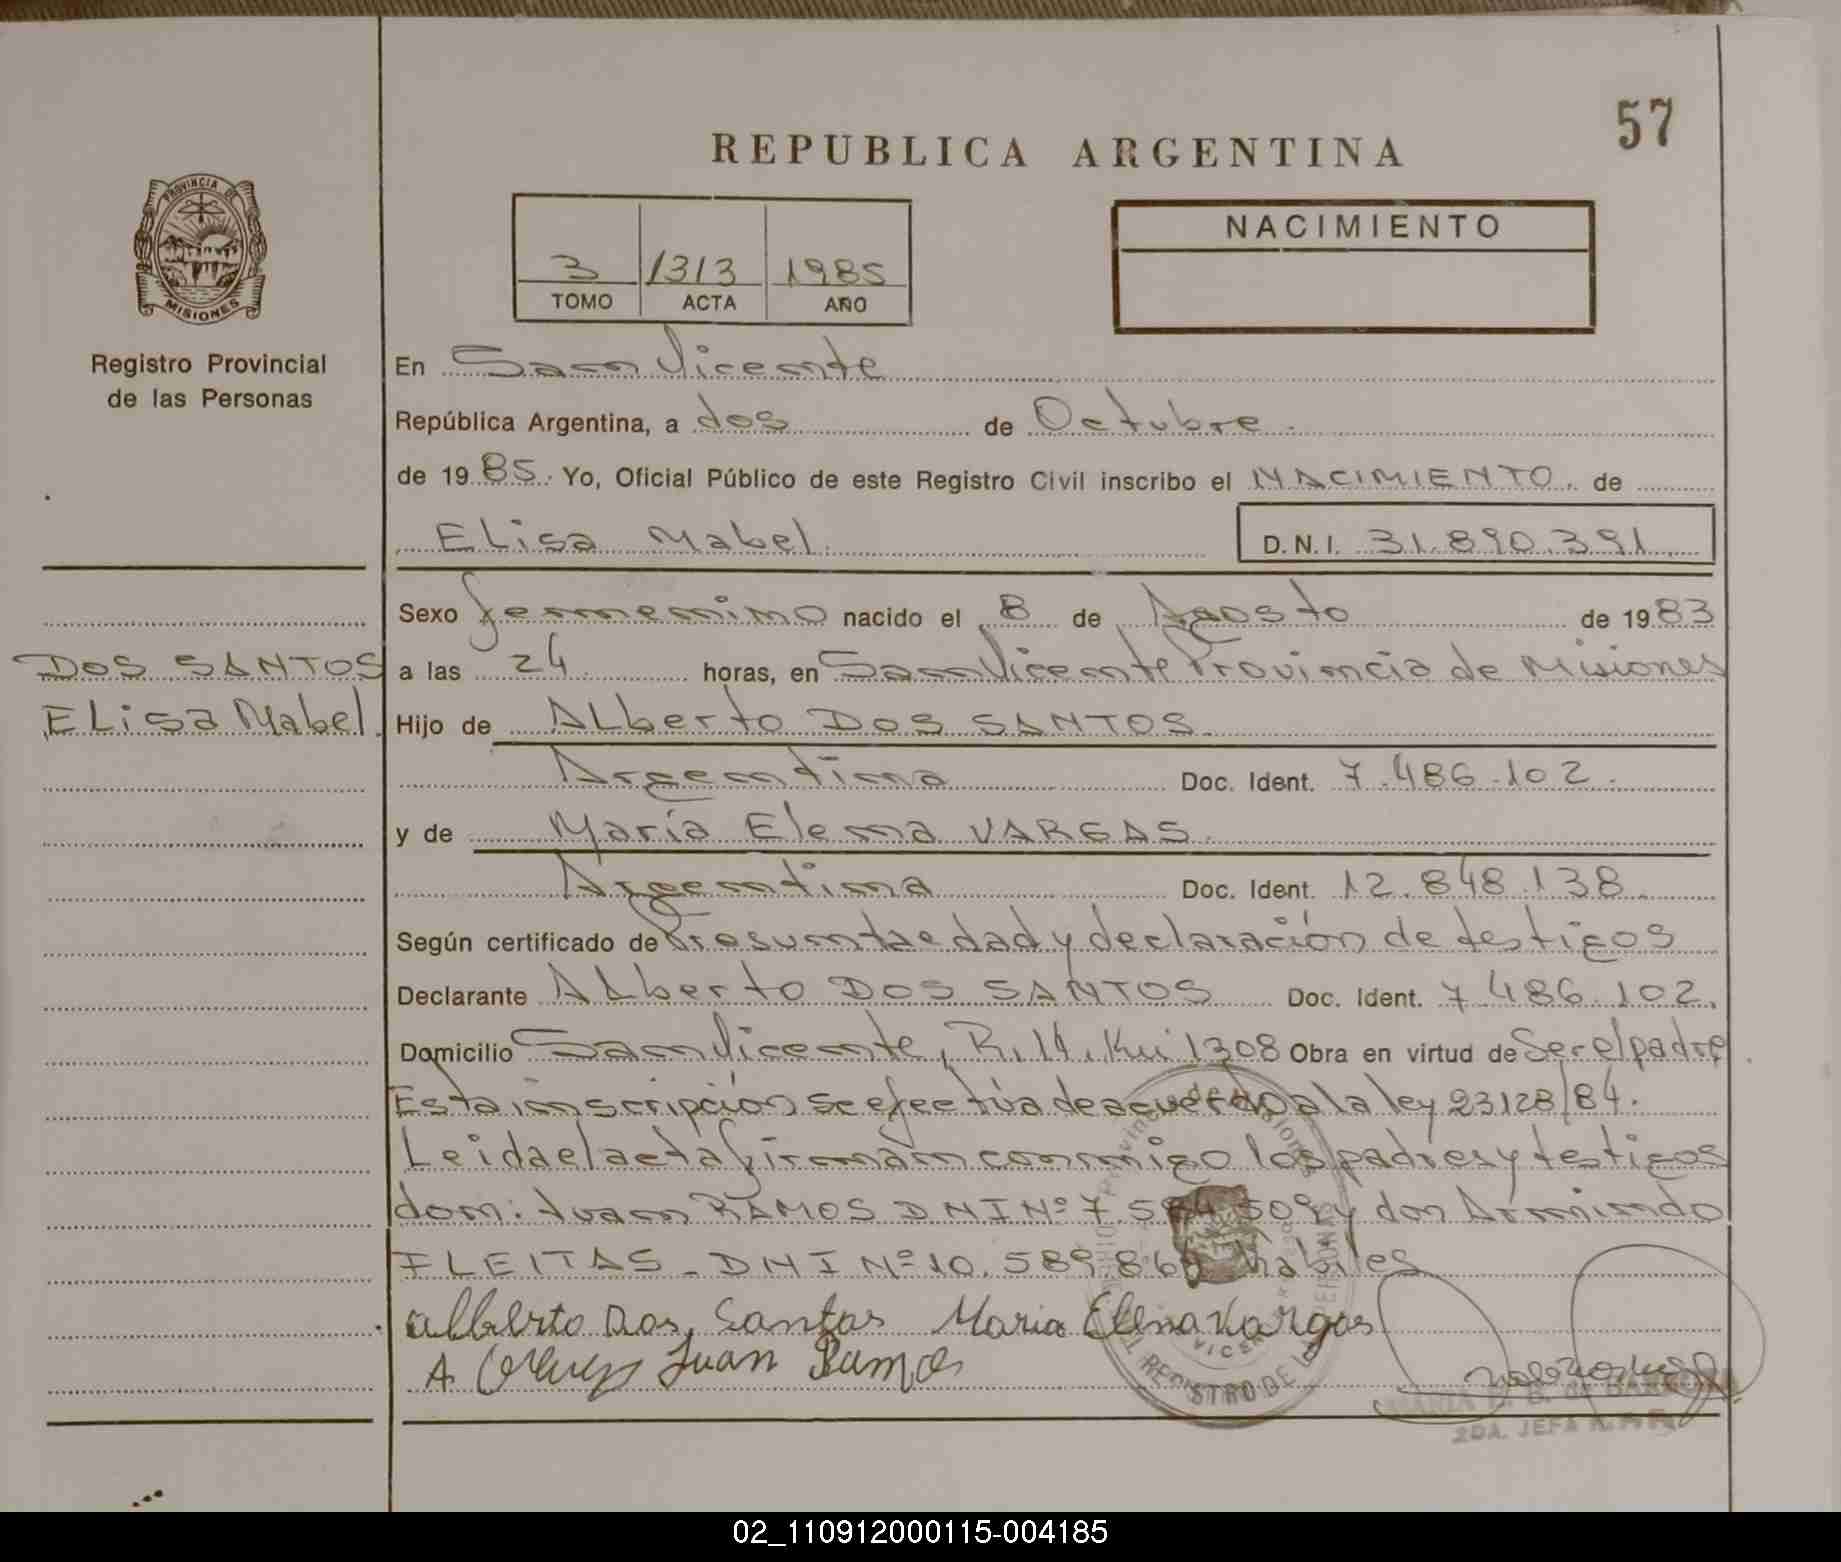 57
REPUBLICA ARGENTINA
PROVINCIA DE
MISIONES
Registro Provincial
de las Personas
3 1313 1985
TOMO ACTA AÑO
NACIMIENTO
En San Vicente
República Argentina, a dos de Octubre.
de 1985. Yo, Oficial Público de este Registro Civil inscribo el NACIMIENTO. de
Elisa Mabel. D.N.I. 31.890.391
Sexo femenino nacido el 8 de Agosto de 1983
DOS SANTOS
Elisa Mabel.
a las 24 horas, en San Vicente Provincia de Misiones
Hijo de Alberto DOS SANTOS.
Argentina Doc. Ident. 7.486.102.
y de María Elena VARGAS.
Argentina Doc. Ident. 12.848.138
Según certificado de Presunta edad y declaración de testigos
Declarante Alberto DOS SANTOS Doc. Ident. 7.486.102.
Domicilio San Vicente, 1308 Obra en virtud de Ser el padre
Esta inscripción se efectúa de acuerdo a la ley 23128/84.
Leida el acta firman conmigo los padres y testigos
don: Juan RAMOS DNI Nº 7.5 509 y don Armindo
FLEITAS - DNI Nº 10.589.86 habiles
Alberto Dos Santos Maria Elena Vargas
A. Juan Ramos
REGISTRO DE LAS PERSONAS
2DA. JEFA
02_110912000115-004185